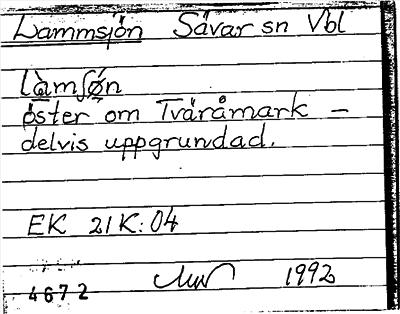 Lammsjön Sävar sn Vbl
làmʃǿn
öster om Tväråmark –
delvis uppgrundad.
EK 21K:04
1992
4672